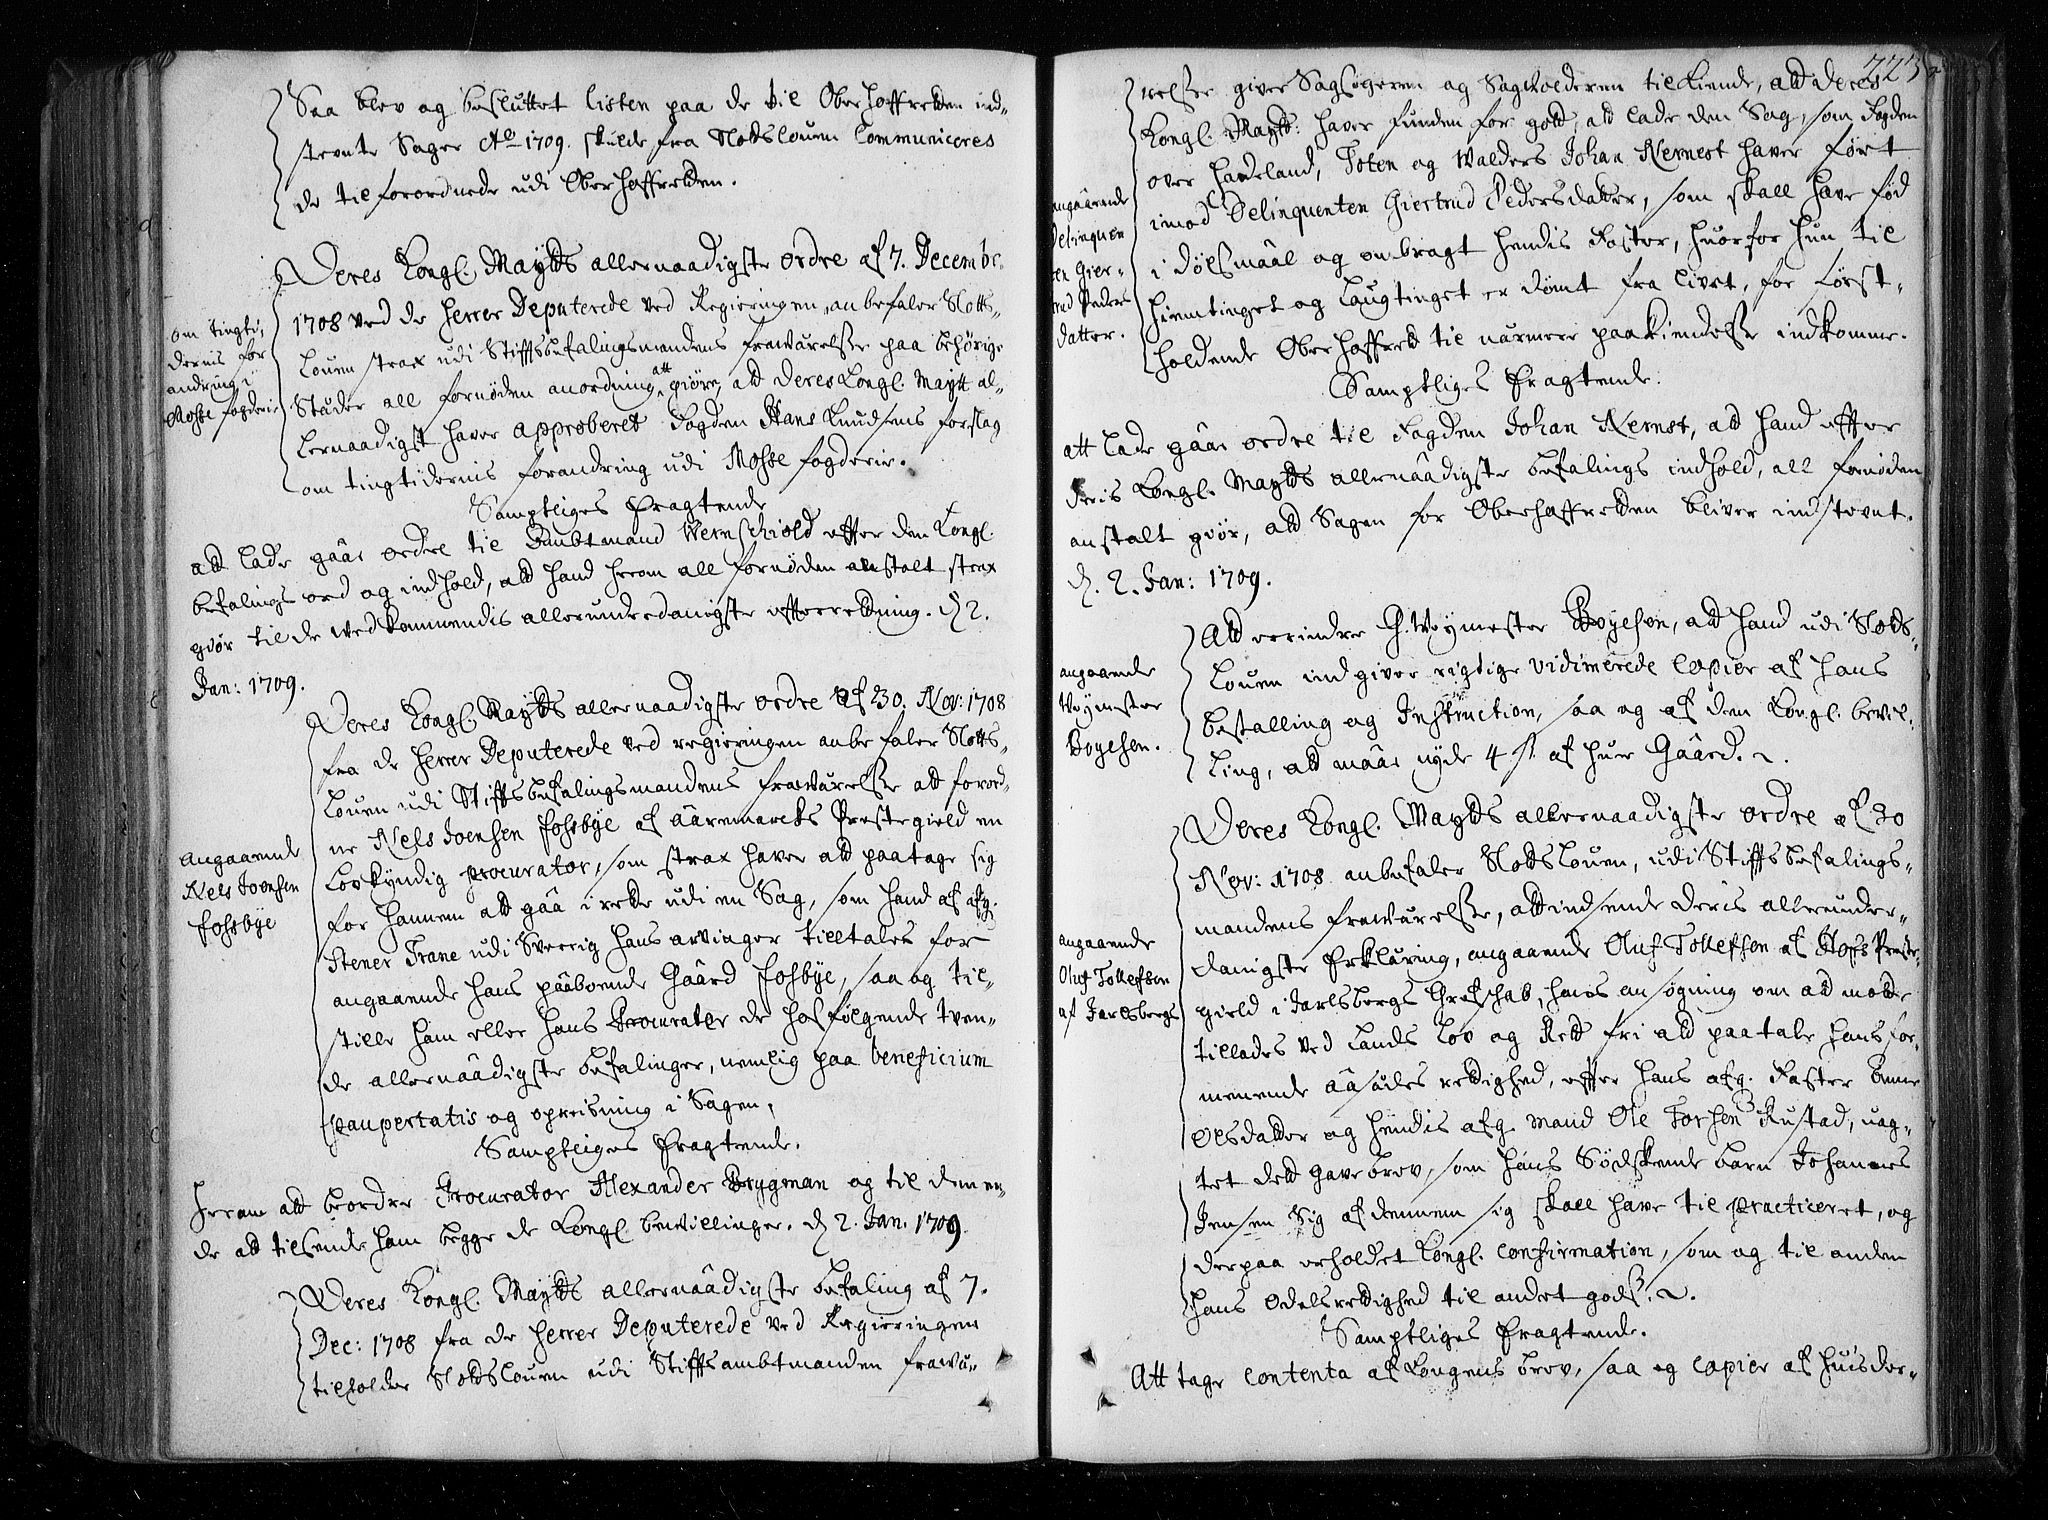 Saa blev og besluttet listen paa de til Oberhoffretten ind-
stevnte Sager Ao 1709. skulde fra Slodslouen Communiceres
de tilforordnede udi Oberhoffretten.
Deres Kongl. Maytts allernaadigste ordre af 7. Decembr.
1708 ved de Herrer Deputerede ved Regieringen, anbefaler Slotts-
Louen strax udi Stifftsbefalingsmandens frawærelse paa behørige
Stæder all fornøden anordning att giøre, att Deres Kongl. Maytt al-
lernaadigst haver approberet Fogden Hans Knudsens forslag
om tingtidernis forandring udi Mosse fogderie.
om tingti-
dernis for
andring i
Mosse fogderie
Samptliges Eragtende
att lade gaar ordre til Ambtmand Wernschiold effter den Kongl.
befalings ord og indhold, att hand herom all fornøden anstalt strax
giør til de wedkommendis allerunderdanigste efterretning. d 2.
Jan: 1709.
Deres Kongl. Maytts allernaadigste ordre af 30. Nov: 1708
fra de Herrer Deputerede ved regieringen anbefaler Slotts-
Louen udi Stifftsbefalingsmandens frawærelse att forord-
ne Niels Joensen Fosbye af Aaremarcks Prestegield en
Lovkyndig procurator, som strax haver att paatage sig
for hannem att gaa i rette udi en Sag, som hand af afg.
Stener Trane udi Sverrig hans arvinger tilltales for
angaaende hans paaboende Gaard Fosbye, saa og til-
stille ham eller hans Procurator de hosfølgende tven-
de allernaadigste befalinger, nemlig paa beneficium
paupertatis og opreisning i Sagen,
Angaaende
Niels Joensen
Fosbye
Samptliges Eragtende.
Herom att beordre Procurator Alexander Brygman og til dem en-
de att tilsende ham begge de Kongl bewillinger. d 2. Jan. 1709.
Deres Kongl. Maytts allernaadigste befaling af 7.
Dec: 1708 fra de Herrer Deputerede ved Regieringen
tilholder Slodslouen udi Stiffts ambtmanden frawæ-
223
relse giver Sagsøgeren og Sagvolderen tilkiende, att Deres
Kongl. Maytt: haver funden for gott, att lade den Sag, som Fogden
over Hadeland, Toten og Walders Johan Nernest haver ført
imod Delinquenten Giertrud Pedersdatter, som skall have fød
i dølsmaal og ombragt hendis Foster, huorfor hun til
Hiemtinget og Laugtinget er dømt fra livet, for først-
holdende Oberhoffrett til nærmere paakiendelse indkomme.
angaaende
Delinquen
ten Gier-
trud Peders
datter.
Samptliges Eragtende.
att lade gaar ordre til Fogden Johan Nernst, att hand effter
deris Kongl. Maytts allernaadigste befalings indhold, all fornøden
anstalt giør, att Sagen for Oberhoffretten bliver indstevnt.
d. 2. Jan: 1709.
Att errindre G. Weymester Boyesen, att hand udi Slods-
Louen indgiver rigtige vidimerede Copier af hans
bestalling og Instruction, saa og af den Kongl. bevil-
ling, att maae nyde 4 s. af huer Gaard.
angaaende
Weymester
Boyesen.
Deres Kongl. Maytts allernaadigste ordre af 30
Nov: 1708 anbefaler Slodslouen, udi Stifftsbefalings-
mandens frawærelse, att indsende deris allerunder-
danigste Erklæring, angaaende Oluf Tollefsen af Hoffs Preste-
gield i Jarlsbergs Grefschab, hans ansøgning om att motte
tillades ved Lands Lov og Rett fri att paatale hans for-
menende aasædes rettighed, effter hans afg. Faster Anne
Olsdatter og hendis afg. mand Ole Torsen Rustad, uag-
tet dett gavebrev, som hans Sødskende barn Johannes
Jensen sig af dennem sig skall have til practiceret, og
derpaa erholdet Kongl. confirmation, som og til anden
hans odelsrettighed til andet gods.
angaaende
Oluf Tollefsen
af Jarlsbergs
Samptliges Eragtende.
Att tage Contenta af Kongens brev, saa og Copier af huis der-